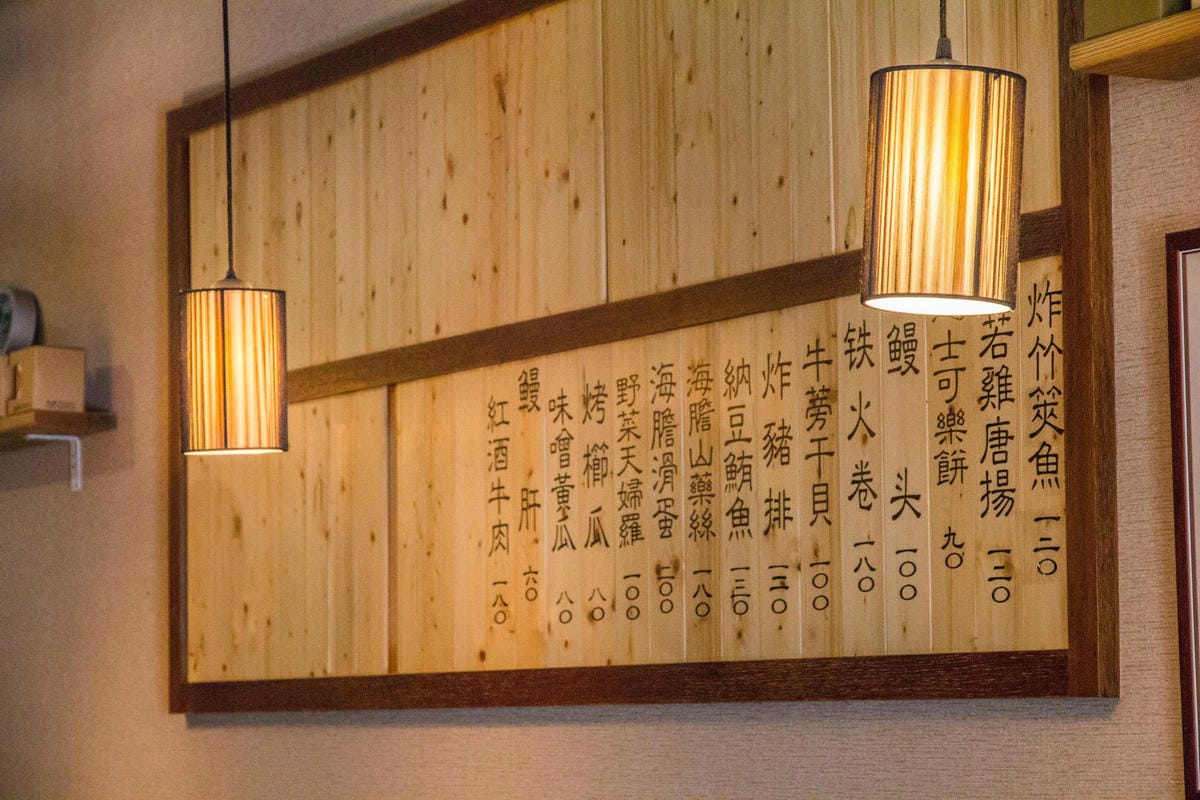 炸竹筴魚 一二〇
若雞唐揚 一二〇
士可樂餅 九〇
鰻头 一〇〇
铁火卷 一八〇
牛蒡干貝 一〇〇
炸豬排 一三〇
納豆鮪魚 一三〇
海膽山藥絲 一八〇
海膽滑蛋 二〇〇
野菜天婦羅 一〇〇
烤櫛瓜 八〇
味噌黃瓜 八〇
鰻肝 六〇
紅酒牛肉 一八〇